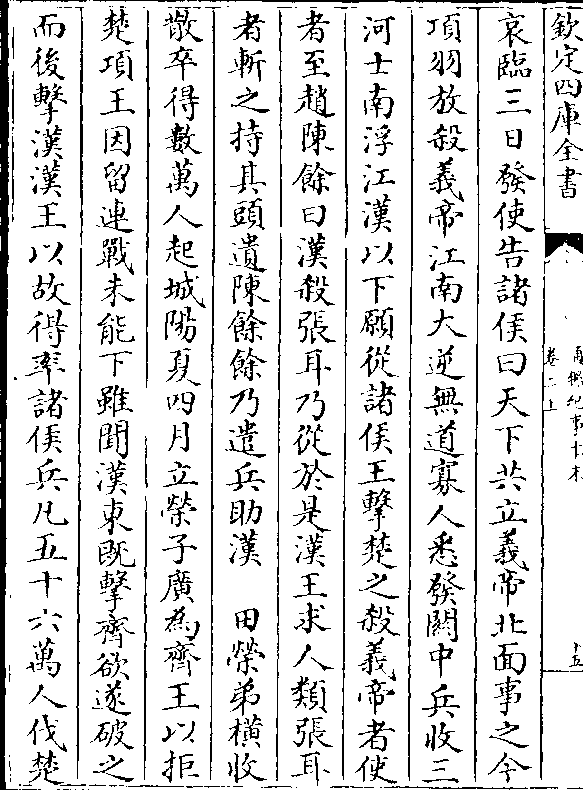 欽定四庫全書
通鑑紀事本末
卷二上
十五
哀臨三日發使告諸侯曰天下共立義帝北面事之今
項羽放殺義帝江南大逆無道寡人悉發關中兵收三
河士南浮江漢以下願從諸侯王擊楚之殺義帝者使
者至趙陳餘曰漢殺張耳乃從於是漢王求人類張耳
者斬之持其頭遺陳餘餘乃遣兵助漢　田榮弟橫收
散卒得數萬人起城陽夏四月立榮子廣為齊王以拒
楚項王因留連戰未能下雖聞漢東旣擊齊欲遂破之
而後擊漢漢王以故得率諸侯兵凡五十六萬人伐楚